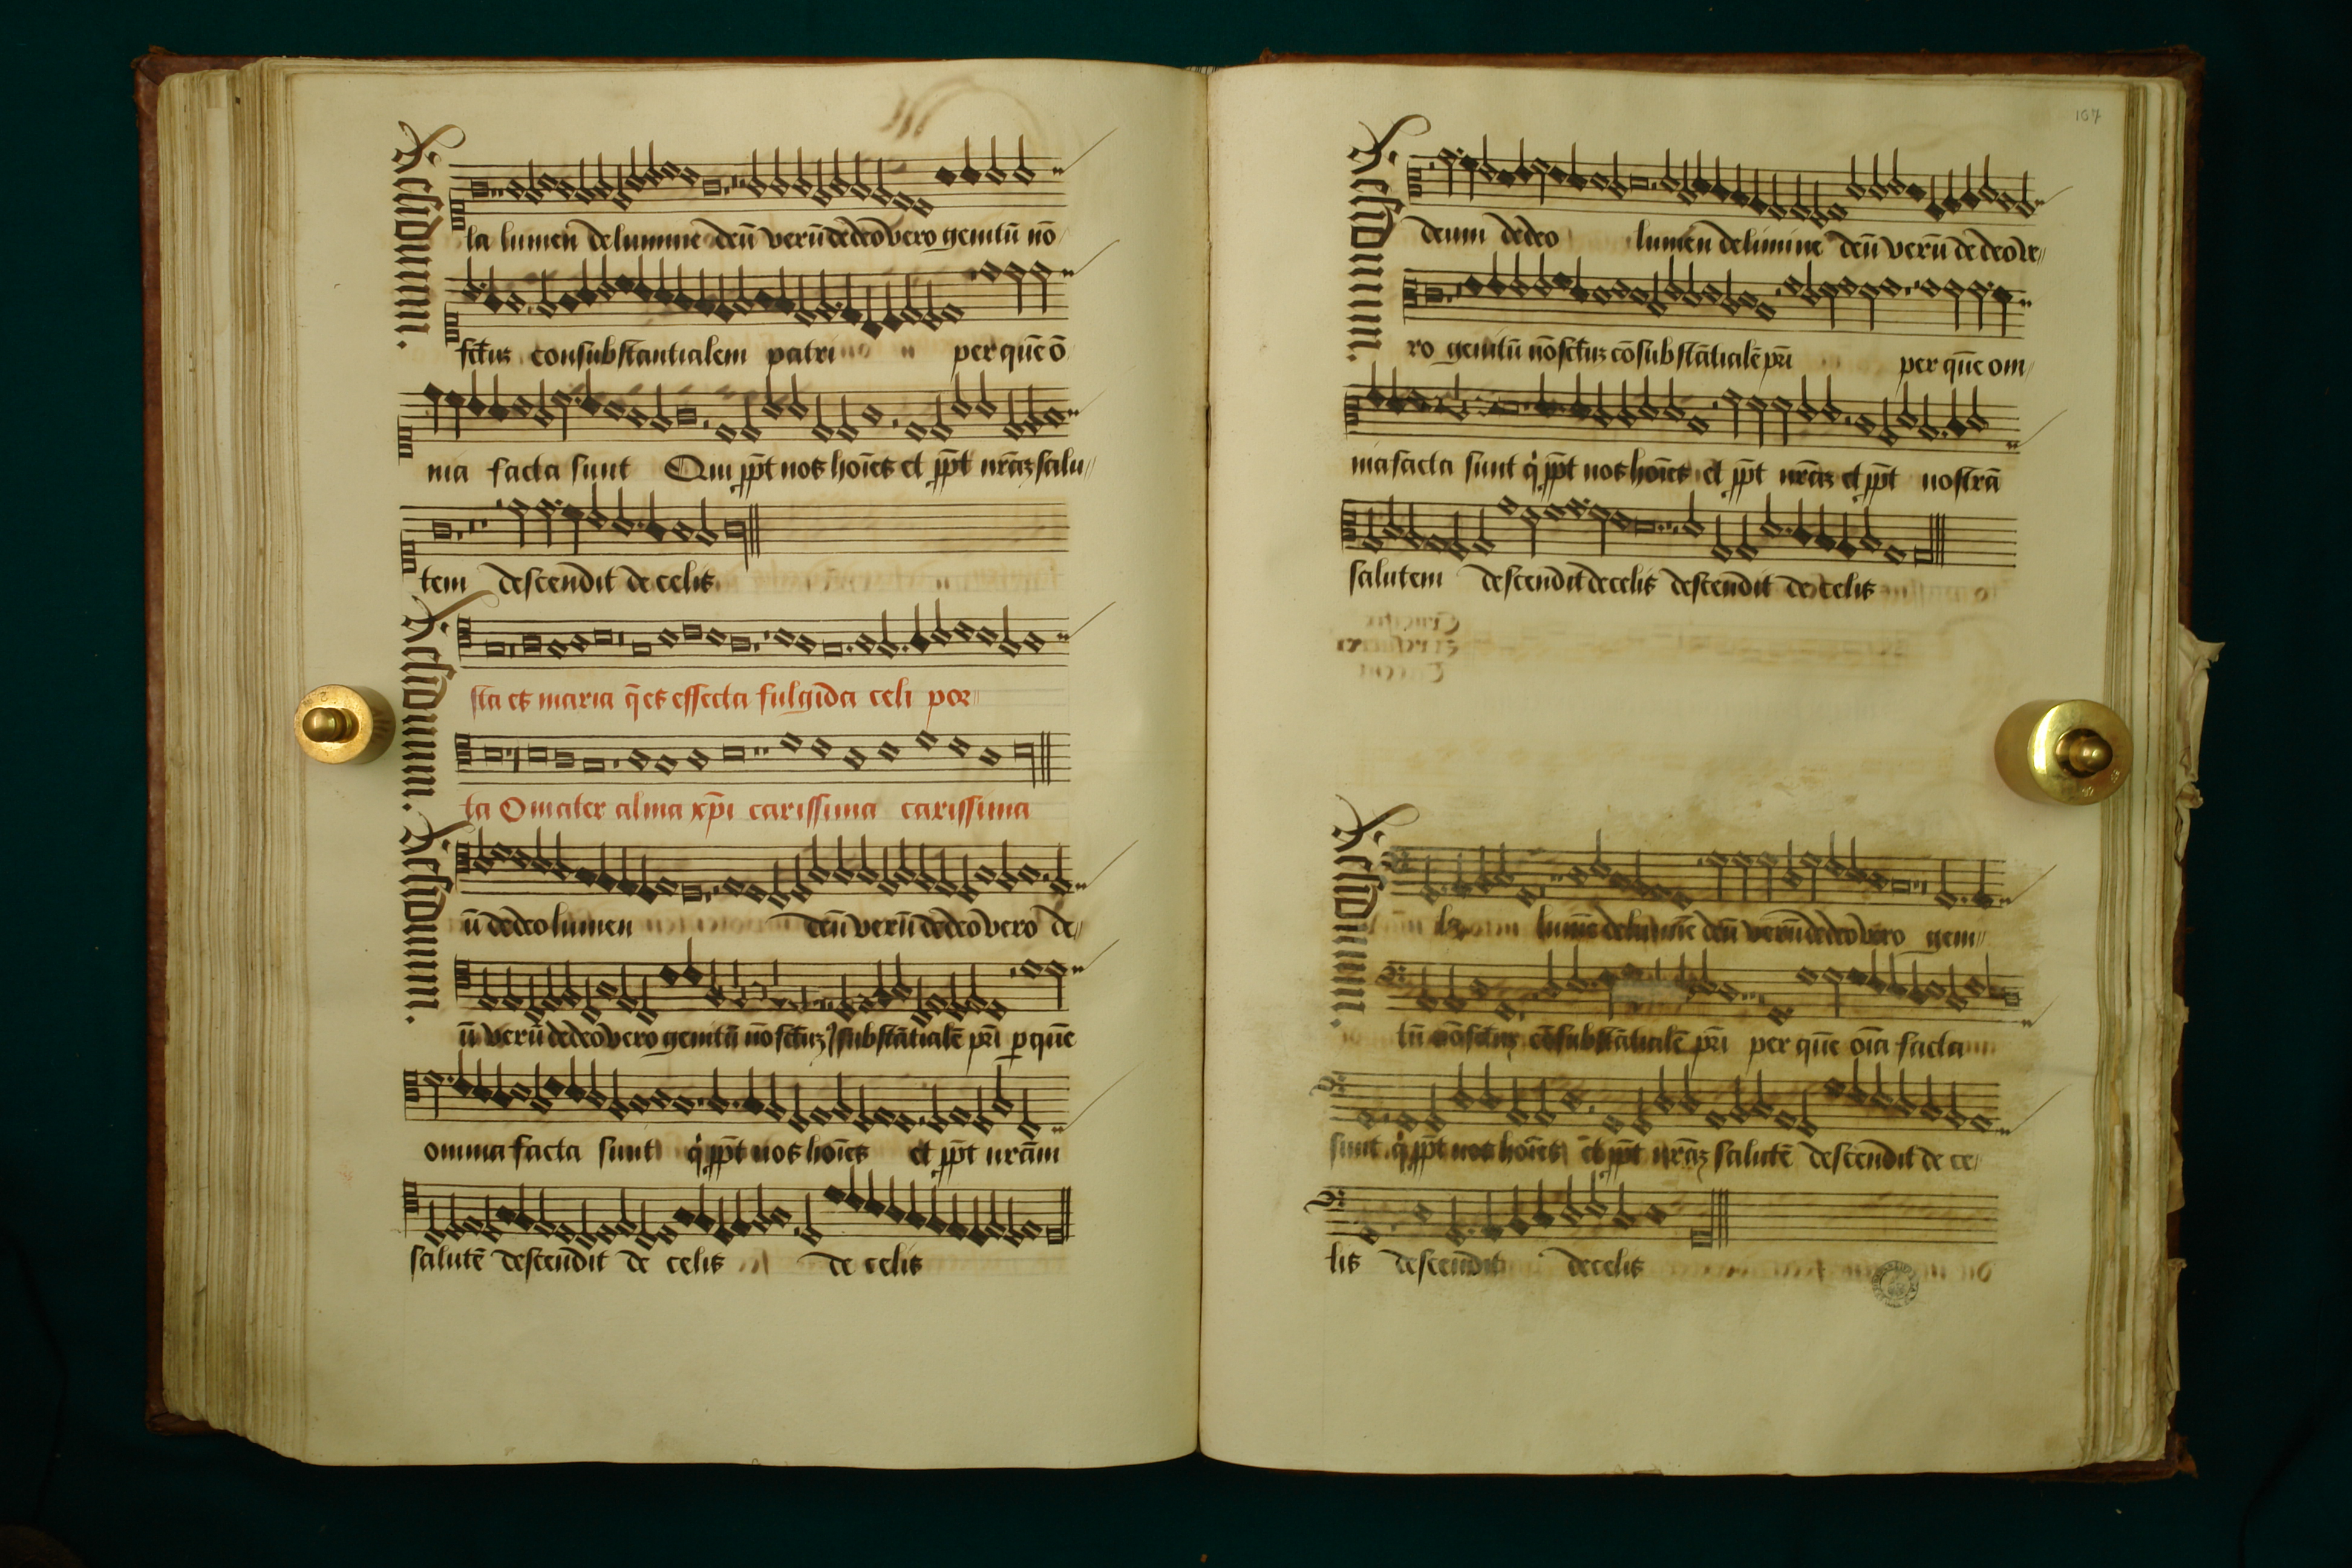 Residuum.
la lumen de lumine deū verū de deo vero genitū nō
fctūz consubstantialem patri per quē ō
nia facta sunt Qui ppt nos hoīes et ppt nrāz salu//
tem descendit de celis
Residuum.
sta es maria q̄ es effecta fulgida celi por//
ta O mater alma xp̄i carissima carissima
Residuum.
ū de deo lumen deū verū de deo vero de//
ū verū de deo vero genitū nō fctūz substātialē pri p quē
omnia facta sunt q ppt nos hoīes et ppt nrām
salutē descendit de celis de celis
107
Residuum.
deum de deo lumen de limine deū verū de deo ve//
ro genitū nō fctūz cōsubstātialē pri per quē om//
nia facta sunt q ppt nos hoīes et ppt nrāz et ppt nostrā
salutem descendit de celis descendit de celis
Residuum.
lumē de lumīe deū verū de deo vero geni//
tū nō fctūz cōsubstātialē pri per quē oīa facta
sunt q ppt nos hoīes et ppt nrāz salutē descendit de ce//
lis descendit de celis